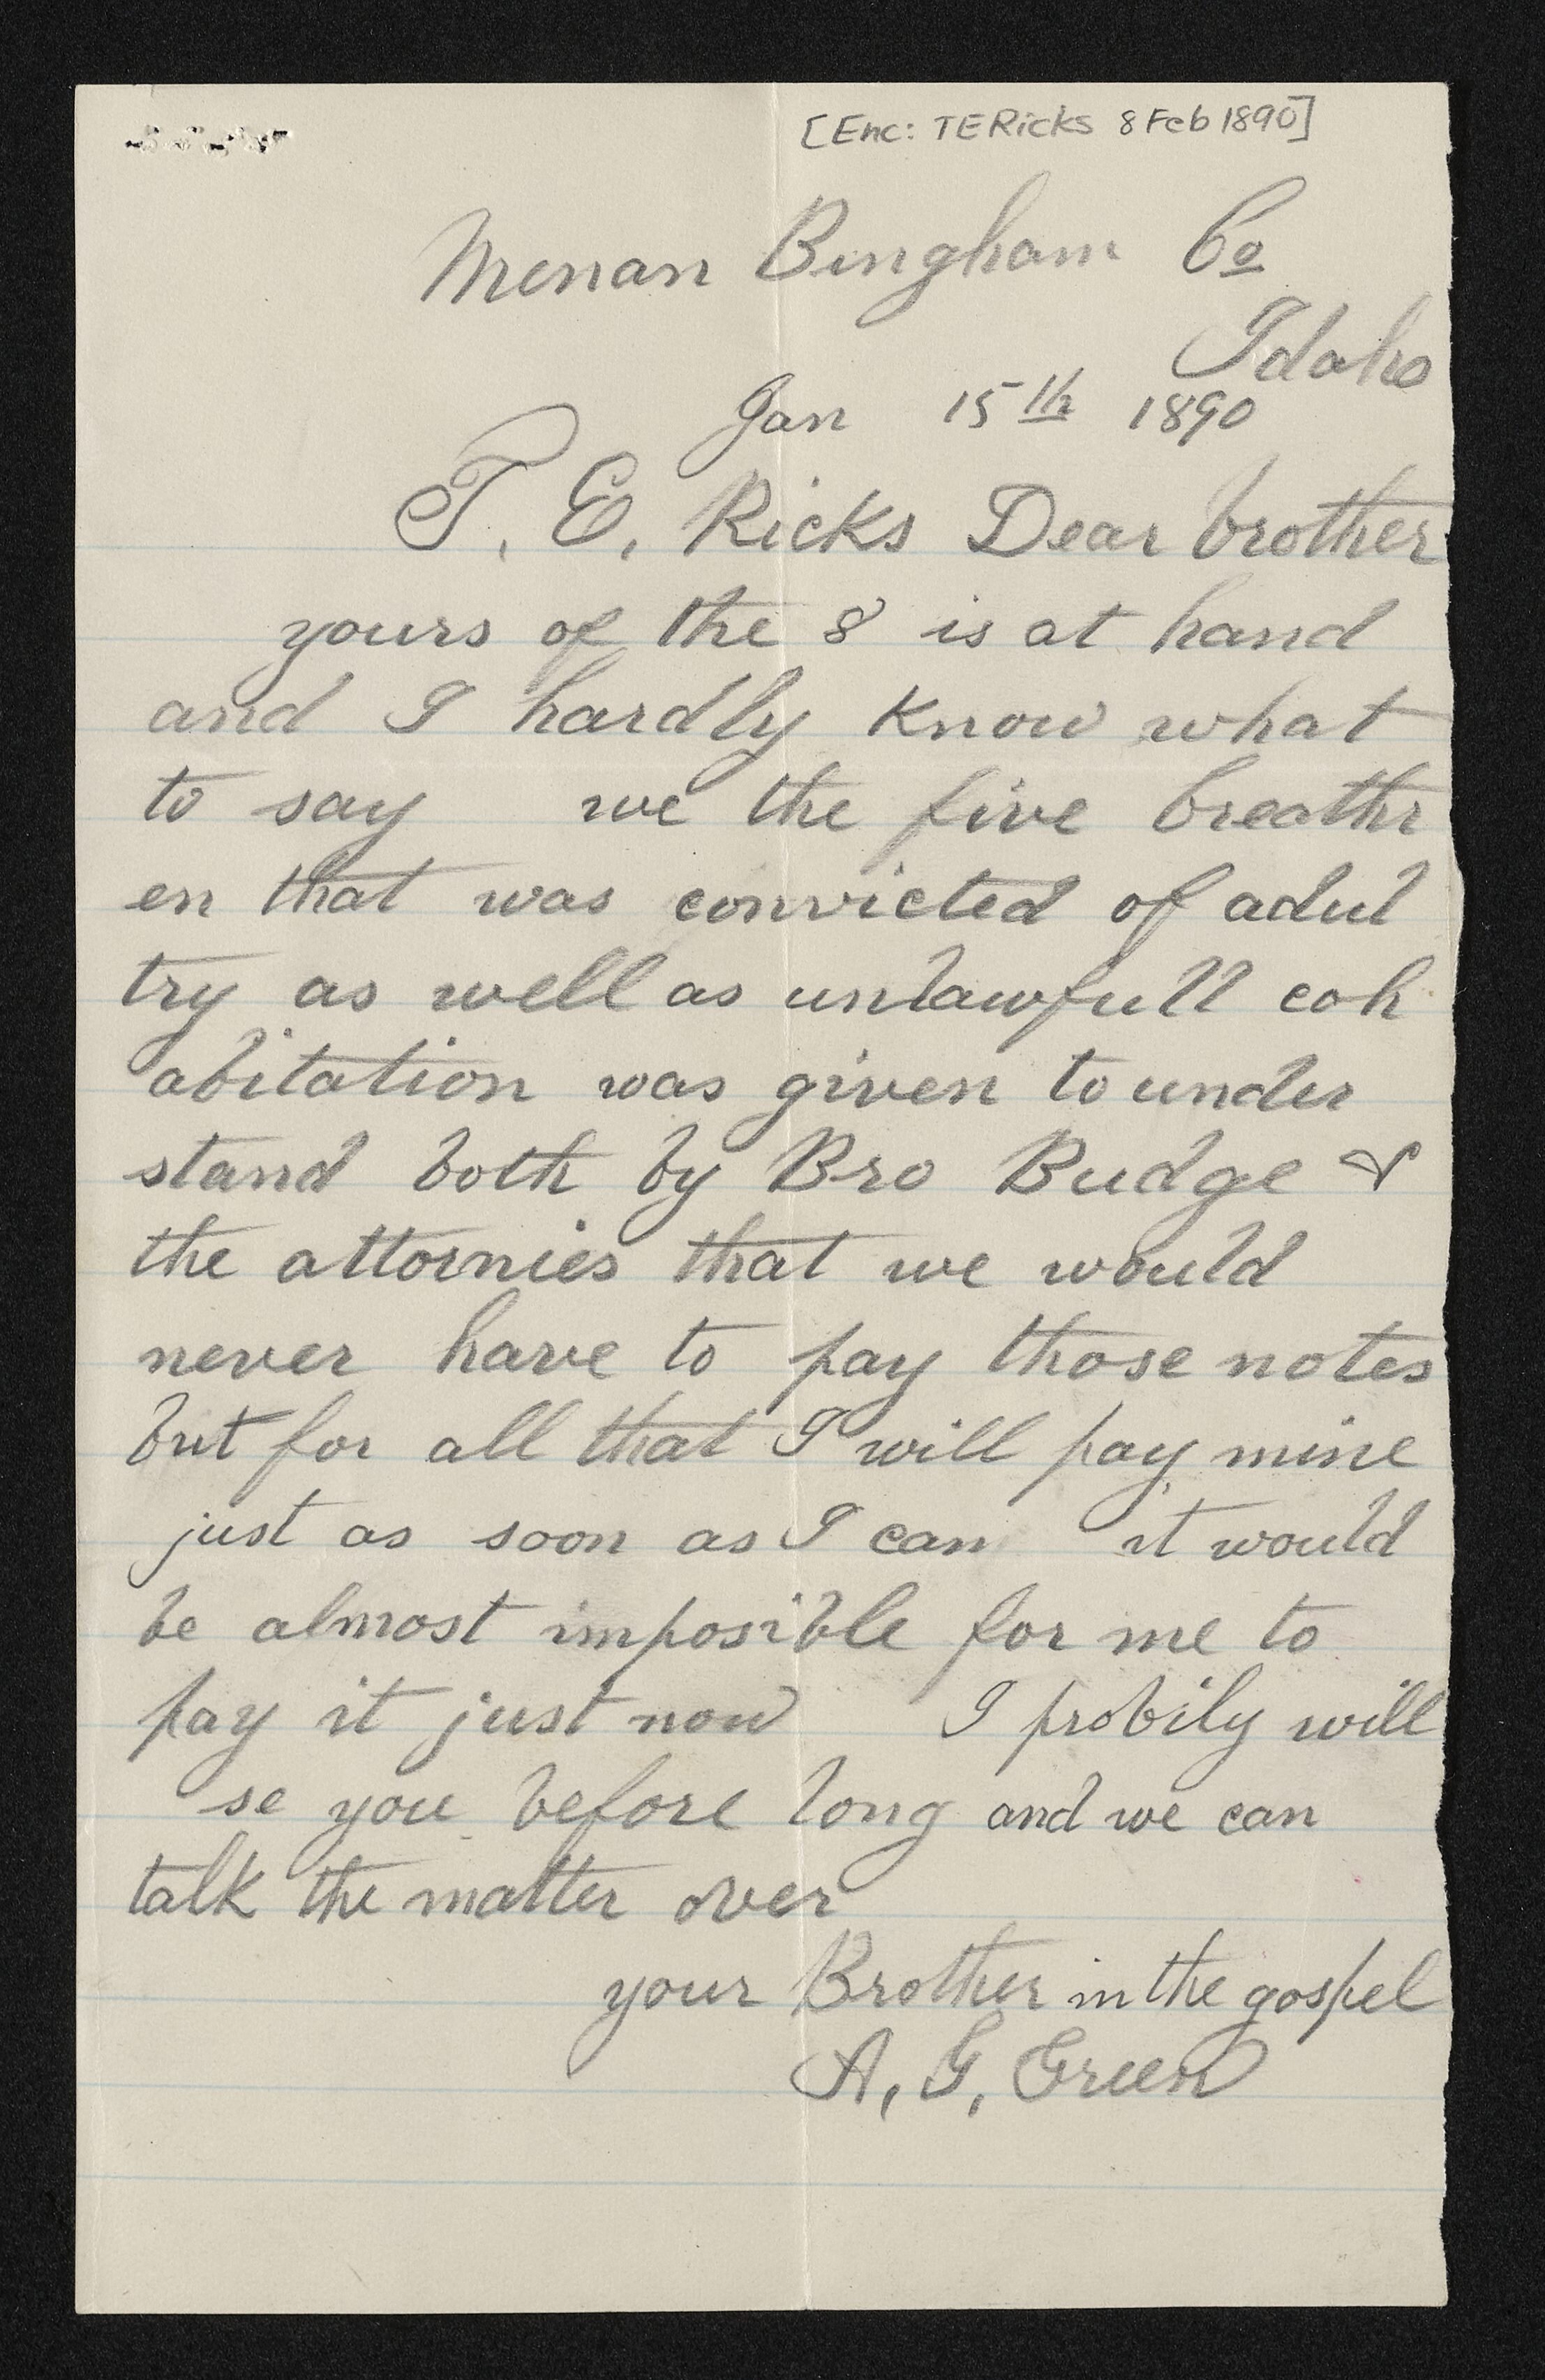 [Enc: TERicks 8 Feb 1890]
Menan Bingham Co
Idaho
Jan 15th 1890
T. E. Ricks Dear brother
yours of the 8 is at hand
and I hardly know what
to say we the five breathr
en that was convicted of adul
try as well as unlawfull coh
abitation was given to under
stand both by Bro Budge &
the attornies that we would
never have to pay those notes
but for all that I will pay mine
just as soon as I can it would
be almost imposible for me to
pay it just now I probily will
se you before long and we can
talk the matter over
your Brother in the gospel
A, G, Green